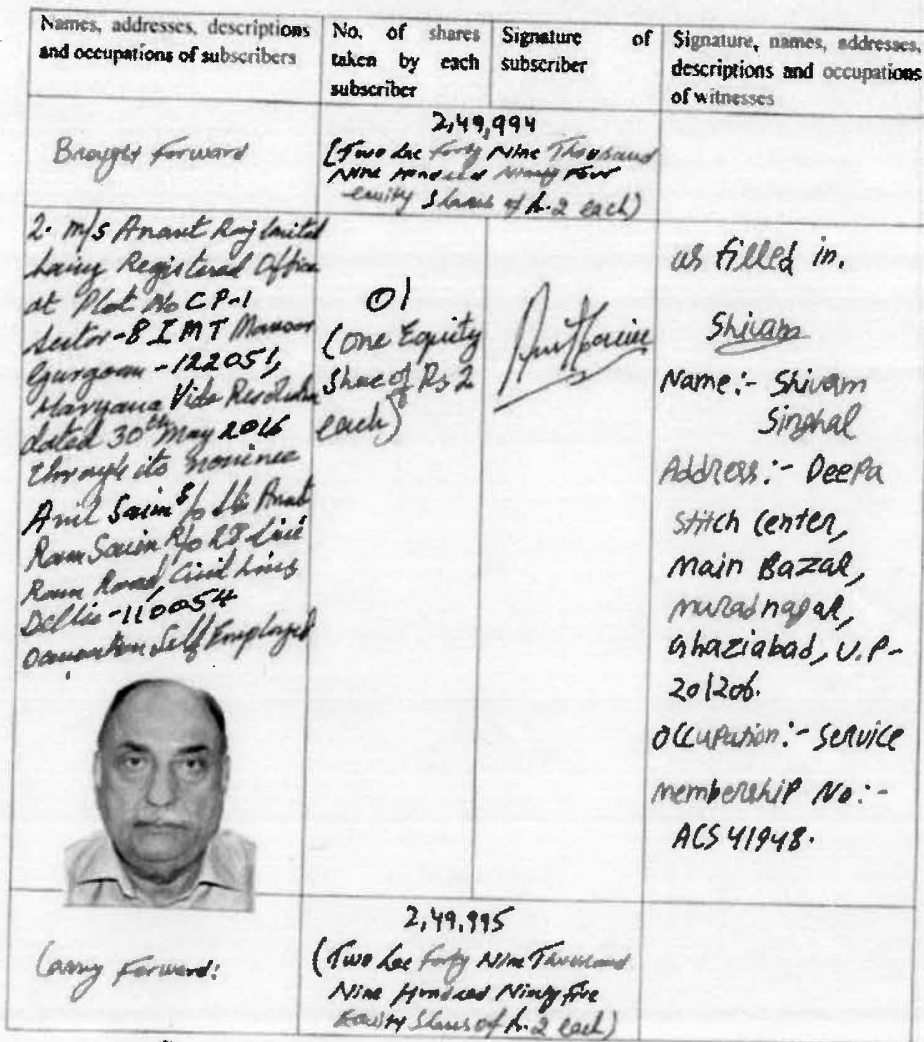 Names, addresses, descriptions
and occupations of subscribers
No. of shares
taken by each
subscriber
Signature of
subscriber
Signature, names, addresses,
descriptions and occupations
of witnesses
Brought Forward
2,49,994
(Two Lac Forty Nine Thousand
Nine Hundred Ninety Four
equity Shares of Rs.2 each)
2. M/s Anant Raj Limited
having Registered Office
at Plot No CP-1
Sector-8 IMT Manesar
Gurgaon-122051,
Haryana Vide Resolution
dated 30th May 2016
through its nominee
Anil Sarin S/o Sh. Anant
Ram Sarin R/o
Ram Road, Civil Lines
Delhi-110054
Occupation Self Employed
01
(One Equity
Share of Rs 2
each)
as filled in.
Shivam
Name:- Shivam
Singhal
Address:- Deepa
Stitch Center,
Main Bazar,
Muradnagar,
Ghaziabad, U.P-
201206.
Occupation:- Service
Membership No:-
ACS 41948.
Carry Forward:
2,49,995
(Two Lac Forty Nine Thousand
Nine Hundred Ninety five
Equity Shares of Rs.2 each)